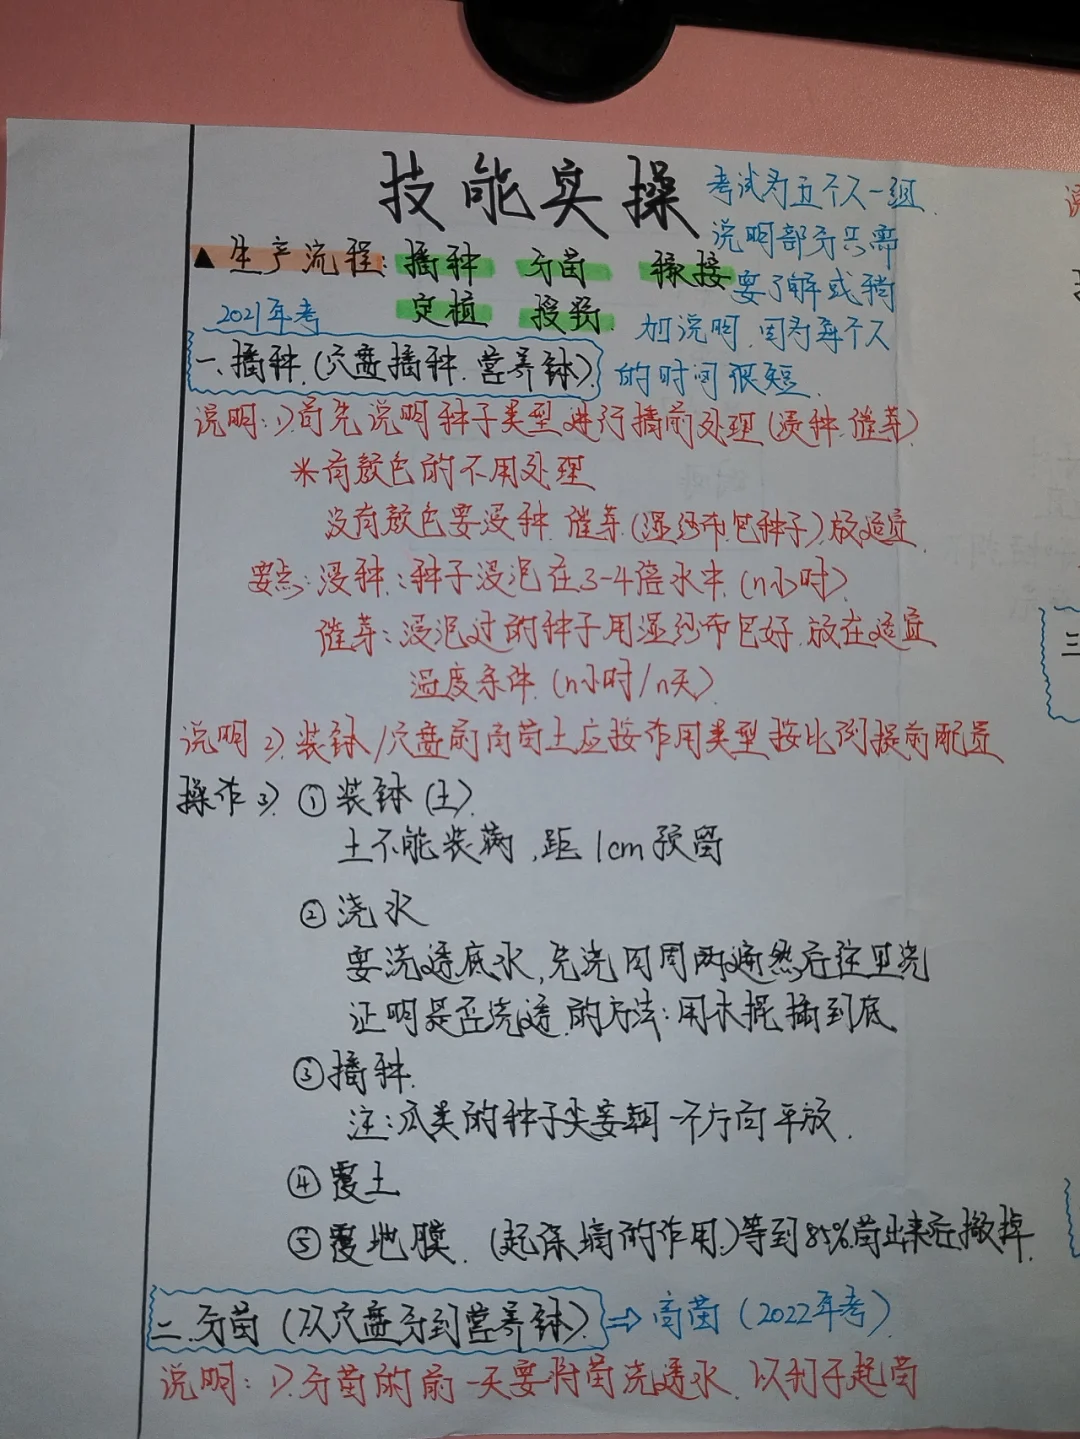 技能实操
考试为五个人一组
说明部分只需
要了解或稍
加说明,因为每个人
的时间很短
▲生产流程:播种 分苗 嫁接
定植 授粉
2021年考
一、播种.(穴盘播种.营养钵)
说明:1)首先说明种子类型进行播前处理(浸种.催芽)
*有颜色的不用处理
没有颜色要浸种.催芽.(湿纱布包种子)放适宜
要点:浸种:种子浸泡在3-4倍水中.(n小时)
催芽:浸泡过的种子用湿纱布包好.放在适宜
温度条件.(n小时/n天)
说明 2)装钵/穴盘前育苗土应按作用类型按比例提前配置
操作 3)①装钵(土)
土不能装满,距1cm预留
②浇水
要浇透底水,先浇四周两遍然后往里浇
证明是否浇透的方法:用木棍插到底
③播种.
注:瓜类的种子尖要朝一个方向平放.
④覆土
⑤覆地膜.(起保墒的作用)等到85%苗出来后撤掉
二.分苗(从穴盘分到营养钵)⇒育苗(2022年考)
说明:1)分苗的前一天要将苗浇透水.以利于起苗
三